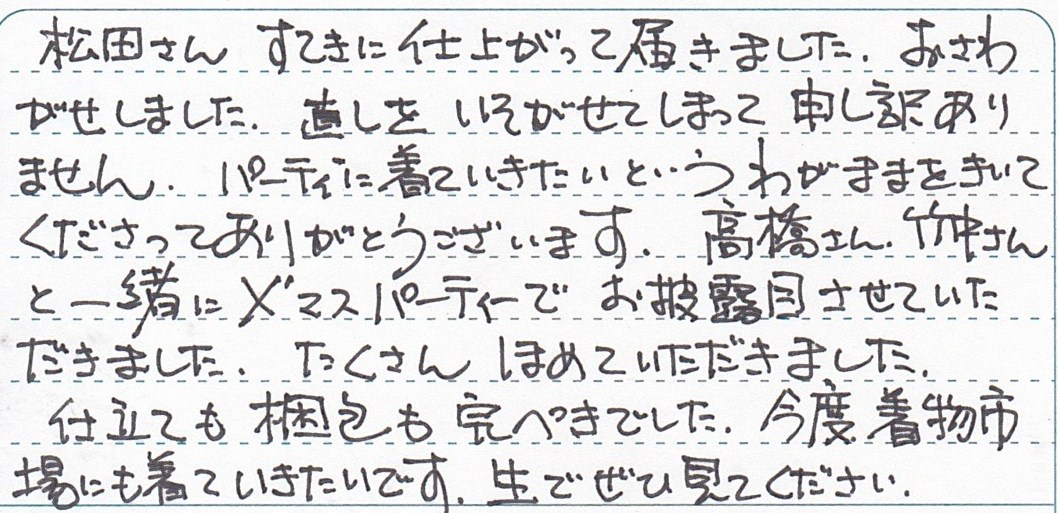 松田さん すてきに仕上がって届きました. おさわ
がせしました. 直しを いそがせてしまって 申し訳あり
ません. パーティに着ていきたいというわがままをきいて
くださってありがとうございます. 高橋さん.竹中さん
と一緒に X'マスパーティーで お披露目させていた
だきました. たくさん ほめていただきました.
仕立ても 梱包も 完ぺきでした. 今度 着物市
場にも着ていきたいです. 生でぜひ見てください.